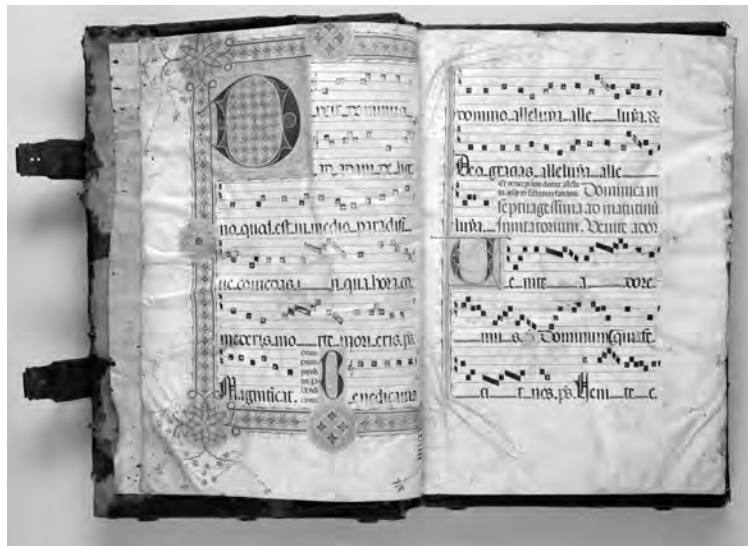 Dixit dominus
ad adam de lig
no.quod.est.in.medio paradisi
ne.comedas.in.qua.hora.co
mederis.morte morieris.ps.
Magnificat. Benedicamus
domino.alleluya.alleluya. R
Deo gracias alleluya alle
Dominica in
septuagessima ad matutinū
luya. Invitatorium. Venite ador
Venite adore
mus. Dominum qui fe
cit nos. ps. Venite e.